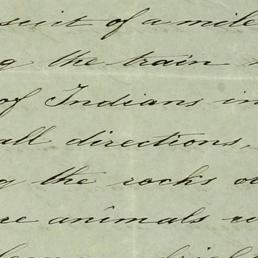 suit of a mile
g the train
of Indians in
all directions,
g the rocks
re animals